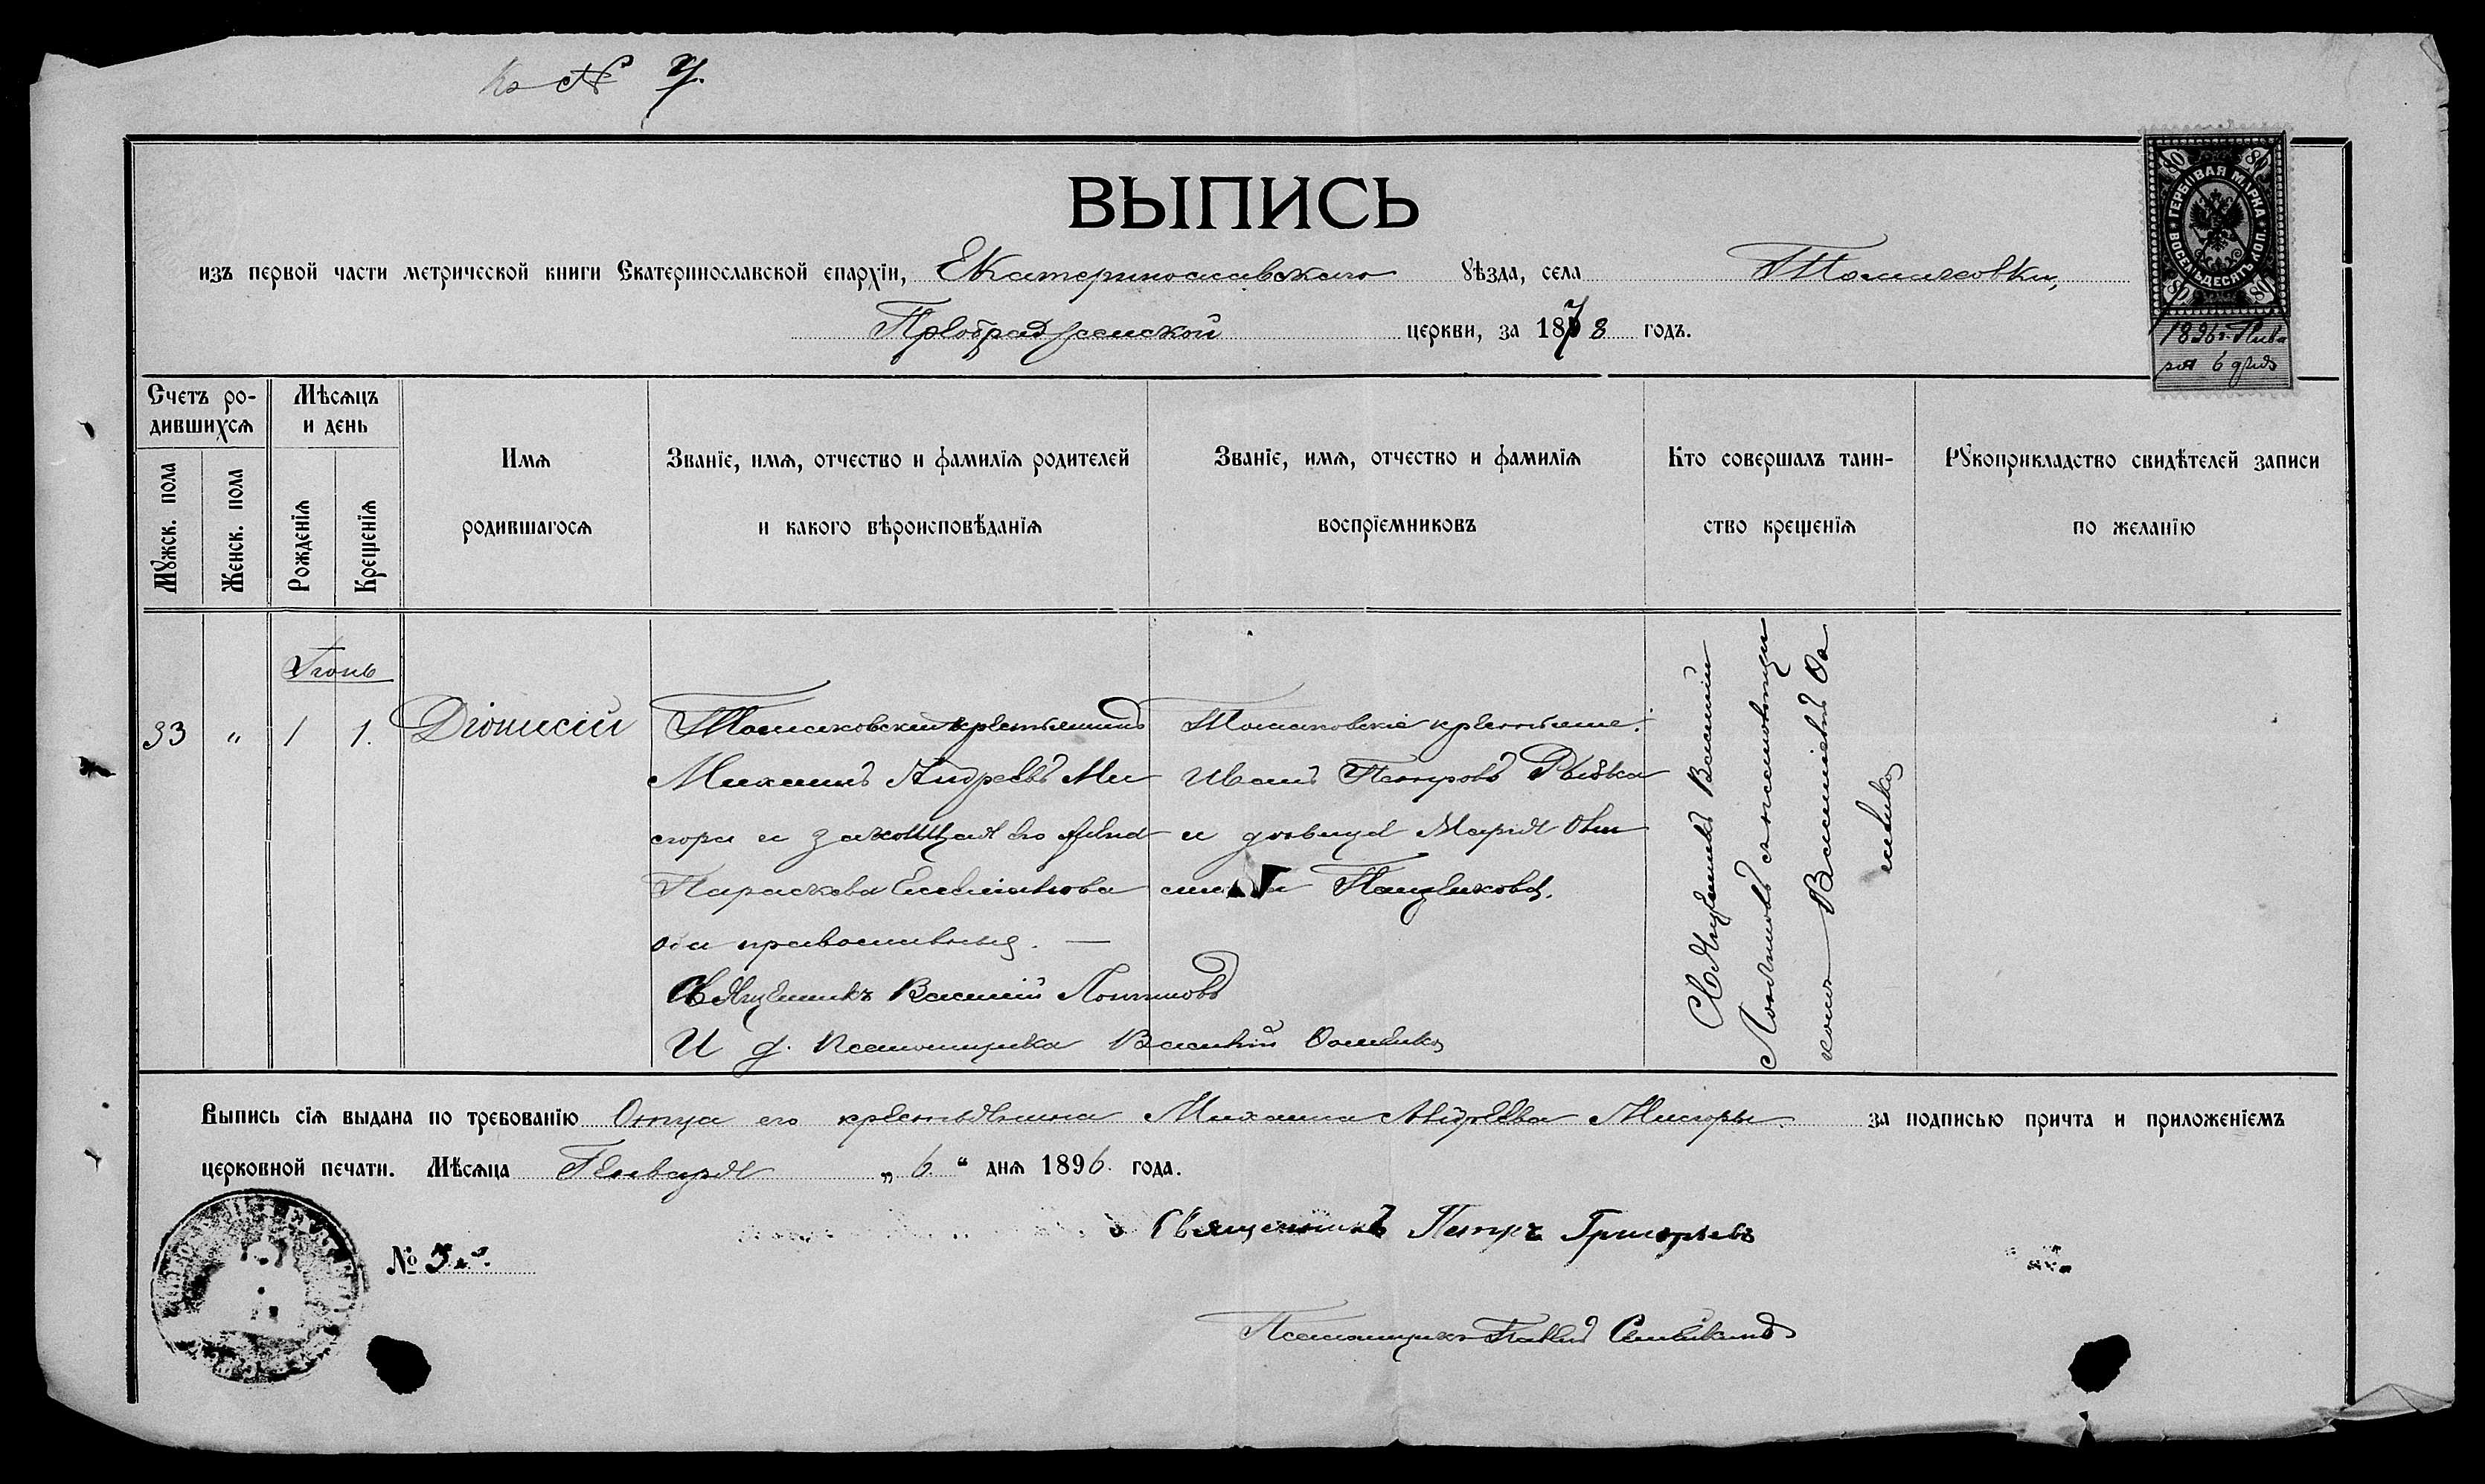 Къ № 7.
ВЫПИСЬ
изъ первой части метрической книги Екатеринославской епархіи, Екатеринославскаго уѣзда, села Томаковки,
Преображенской церкви, за 1878 годъ.
ГЕРБОВАЯ МАРКА
ВОСЕМЬДЕСЯТЪ КОП
80 80 80 80
1896 г. Янва
ря 6 дня
Счетъ ро-
дившихся
Мужск. пола
Женск. пола
Мѣсяцъ
и день
Рожденія
Крещенія
Имя
родившагося
Званіе, имя, отчество и фамилія родителей
и какого вѣроисповѣданія
Званіе, имя, отчество и фамилія
воспріемниковъ
Кто совершалъ таин-
ство крещенія
Рукоприкладство свидѣтелей записи
по желанію
Іюнь
33 „ 1 1. Діонисій
Томаковскій крестьянинъ
Михаилъ Андреевъ Ми
сюра и законная его жена
Параскева
оба православные. —
Священникъ Василій Логиновъ
И д. Псаломщика Василій
Томаковскіе крестьяне:
Иванъ Петровъ Рыбка
и дѣвица Марія
Священникъ Василій
Логиновъ съ псаломщи
комъ Василіемъ
Выпись сія выдана по требованію Отца его крестьянина Михаила Андреева Мисюры. за подписью причта и приложеніемъ
церковной печати. Мѣсяца Генваря „ 6 “ дня 1896. года.
Священникъ Петръ Григорьевъ
№
Псаломщикъ Павелъ